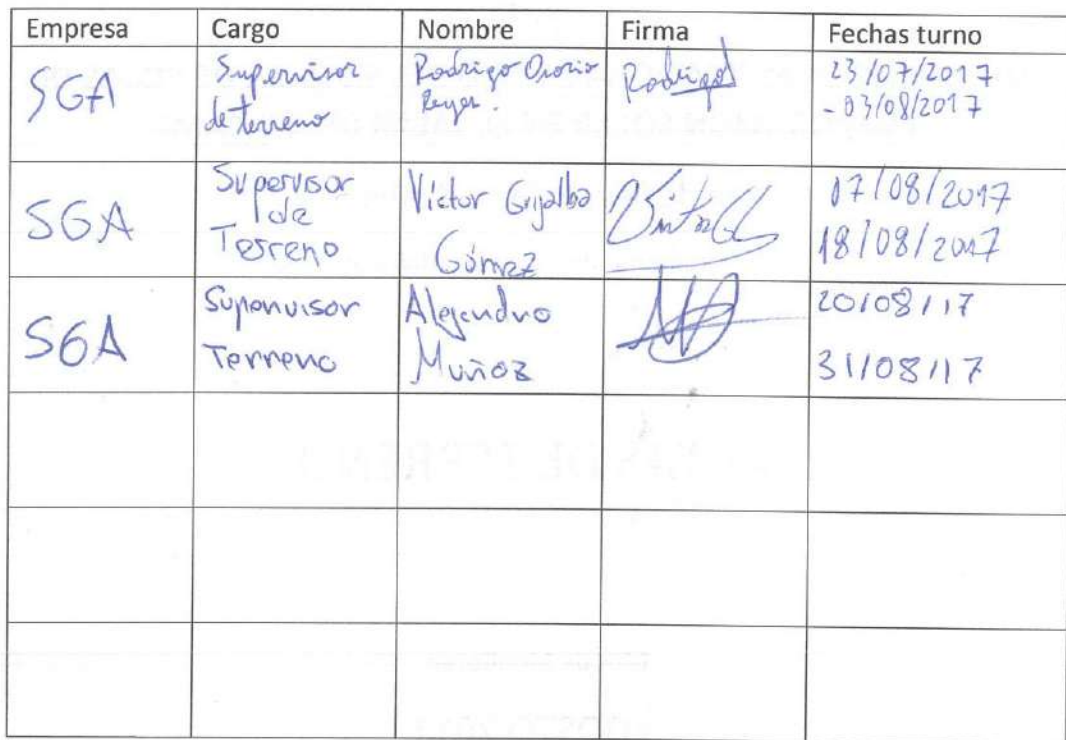 Empresa Cargo Nombre Firma Fechas turno
SGA Supervisor de terreno Rodrigo Osorio Reyes. Rodrigo 23/07/2017 - 03/08/2017
SGA Supervisor de Terreno Víctor Grijalba Gómez 07/08/2017 18/08/2017
SGA Supervisor Terreno Alejandro Muñoz 20/08/17 31/08/17